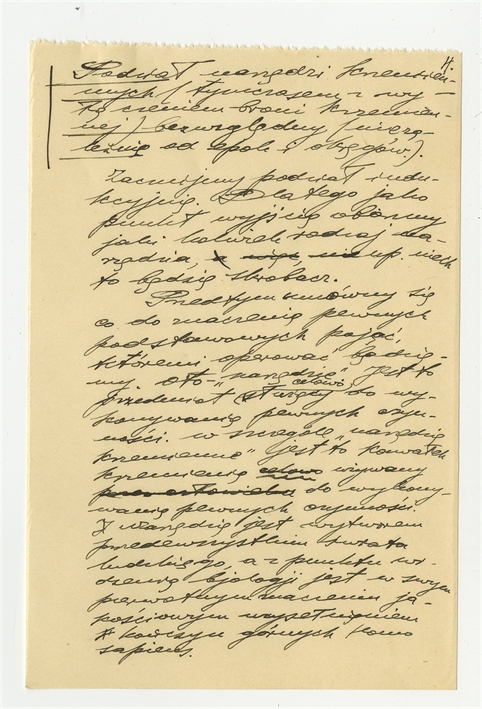 H.
Podział narzędzi krzemien-
nych (tymczasem z wy-
łączeniem broni krzemien-
nej) bezwzględny (nieza-
leżnie od epok i okręgów).
Zacznijmy podział indu-
kcyjnie. Dlatego jako
punkt wyjścia obierzmy
jaki kolwiek rodzaj na-
rzędzia, np. niech
to będzie skrobacz.
Przedtym umówmy się
co do znaczenia pewnych
podstawowych pojęć,
któremi operować będzie-
my. Oto „narzędzie" jest to
przedmiot służący celowo do wy-
konywania pewnych czyn-
ności. W szczególe „narzędzie
krzemienne" jest to kawałek
krzemienia celowo używany
do wykony-
wania pewnych czynności.
Narzędzie jest wytworem
przedewszystkim świata
ludzkiego, a z punktu wi-
dzenia biologji jest w swym
pierwotnym znaczeniu ja-
kościowym
kończyn górnych Homo
sapiens.